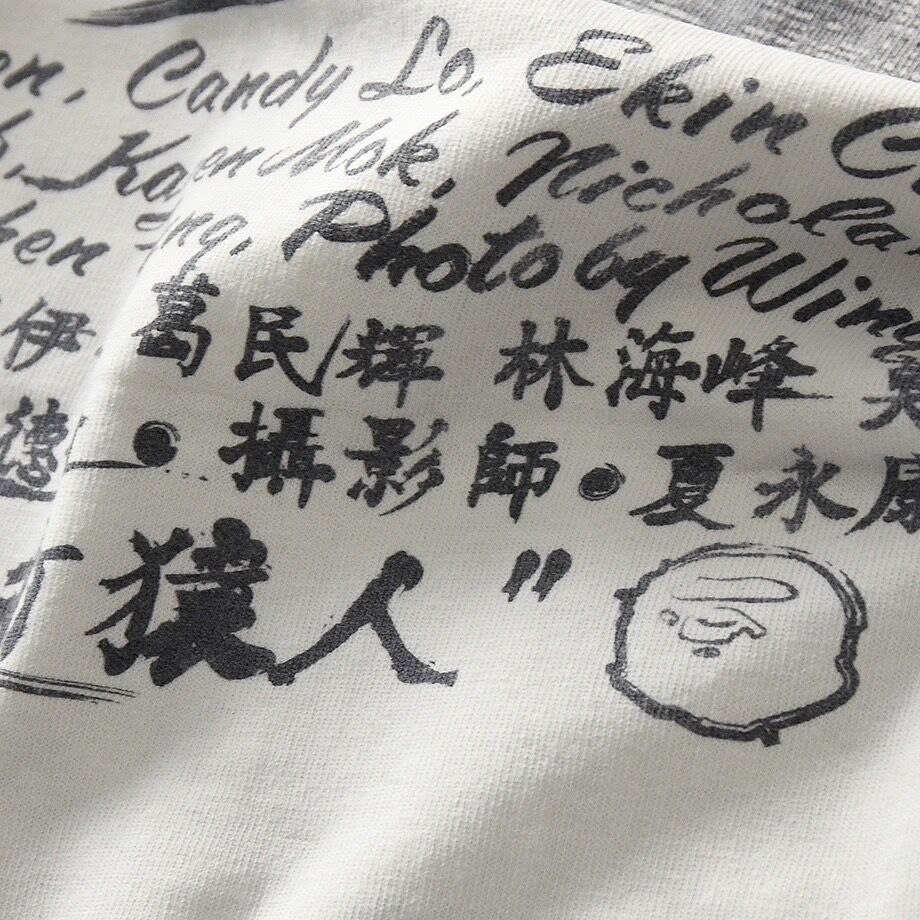 Candy Lo, Ekin
Karen Mok, Nichola
Photo by Wing
伊 葛民輝 林海峰
德 • 攝影師 • 夏永康
猿人"